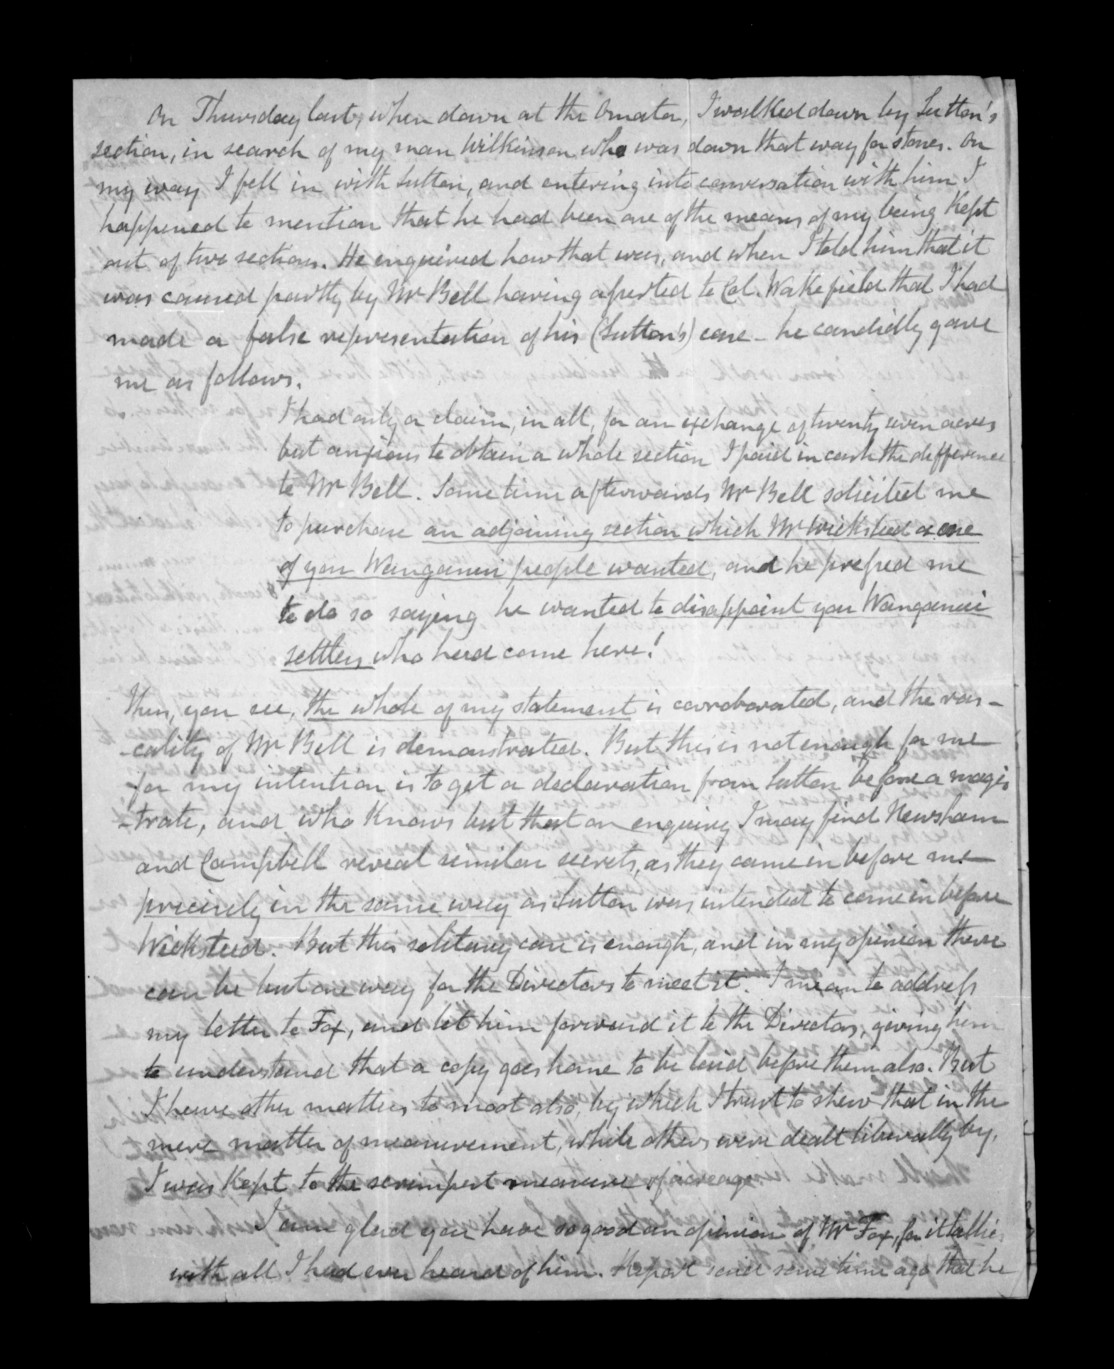 On Thursday last, when down at the Omata, I walked down by Sutton's
section, in search of my man Wilkinson who was down that way for stones. On
my way I fell in with Sutton, and entering into conversation with him I
happened to mention that he had been one of the means of my being kept
out of two sections. He enquired how that was, and when I told him that it
was caused partly by Mr Bell having asserted to Col. Wakefield that I had
made a false representation of his (Sutton's) case - he candidly gave
me as follows.
I had only a claim, in all, for an exchange of twenty seven acres
but anxious to obtain a whole section I paid in cash the difference
to Mr Bell. Some time afterwards Mr Bell solicited me
to purchase an adjoining section which Mr Wicksteed or one
of you Wanganui people wanted, and he pressed me
to do so saying he wanted to disappoint you Wanganui
settlers who had come here!
Thus, you see, the whole of my statement is corroborated, and the ras-
-cality of Mr Bell is demonstrated. But this is not enough for me
for my intention is to get a declaration from Sutton before a magis
-trate, and who knows but that on enquiry I may find Newsham
and Campbell reveal similar secrets, as they came in before me
precisely in the same way as Sutton was intended to come in before
Wicksteed. But this solitary case is enough, and in my opinion there
can be but one way for the Directors to meet it. I mean to address
my letter to Fox, and let him forward it to the Directors, giving him
to understand that a copy goes home to be laid before them also. But
I have other matters to moot also, by which I trust to shew that in the
mere matter of measurement, while others were dealt liberally by,
I was kept to the scrimpest measure of acreage
I am glad you have so good an opinion of Mr Fox, for it tallies
with all I had ever heard of him. Report said some time ago that he